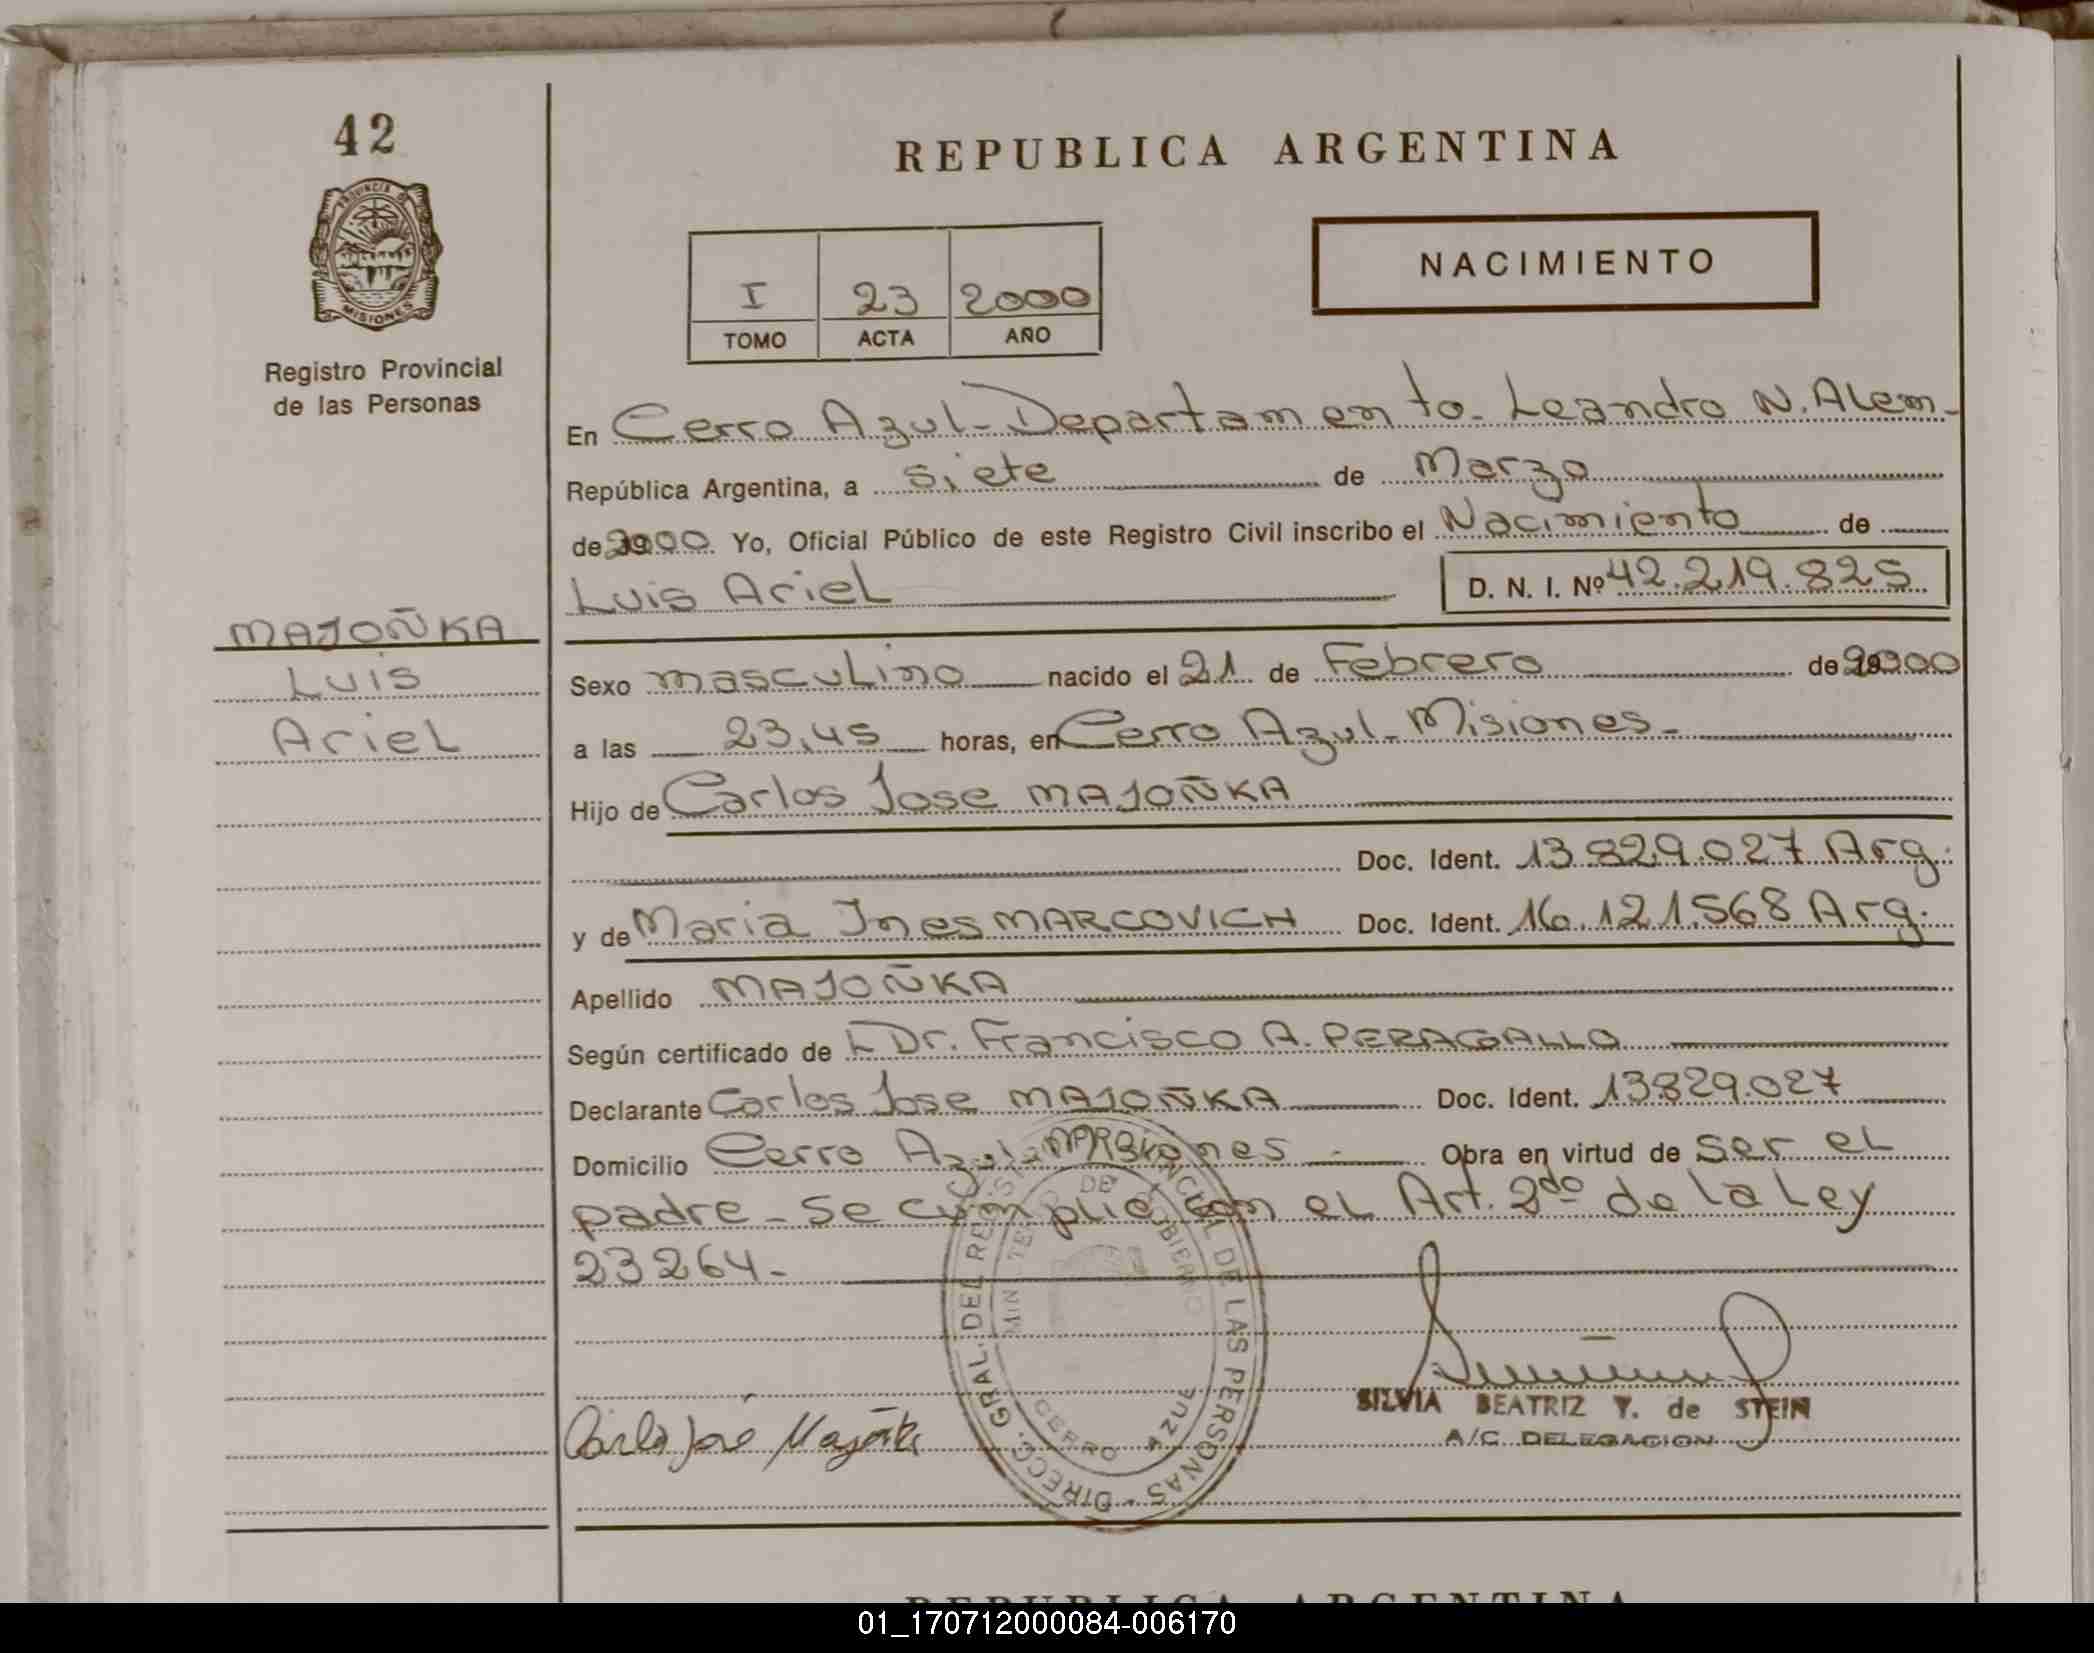 42
REPUBLICA ARGENTINA
PROVINCIA DE
MISIONES
Registro Provincial
de las Personas
NACIMIENTO
I 23 2000
TOMO ACTA AÑO
En Cerro Azul - Departamento - Leandro N. Alem -
República Argentina, a siete de Marzo
de 2000 Yo, Oficial Público de este Registro Civil inscribo el Nacimiento de
Luis Ariel D. N. I. Nº 42.219.825
MAJOÑKA
Luis
Ariel
Sexo masculino nacido el 21 de Febrero de 2000
a las 23,45 horas, en Cerro Azul - Misiones -
Hijo de Carlos Jose MAJOÑKA
Doc. Ident. 13.829.027 Arg.
y de Maria Ines MARCOVICH Doc. Ident. 16.121.568 Arg.
Apellido MAJOÑKA
Según certificado de L Dr. Francisco A. PERAGALLO
Declarante Carlos Jose MAJOÑKA Doc. Ident. 13.829.027
Domicilio Cerro Azul - Misiones - Obra en virtud de ser el
padre - se cumplie con el Art. 2do de la Ley
23264 -
DIRECC. GRAL. DEL REGIST PROVINCIAL DE LAS PERSONAS -
MINISTERIO DE GOBIERNO
CERRO AZUL
Carlos José Majoñka
SILVIA BEATRIZ Y. de STEIN
A/C DELEGACION
REPUBLICA ARGENTINA
01_170712000084-006170